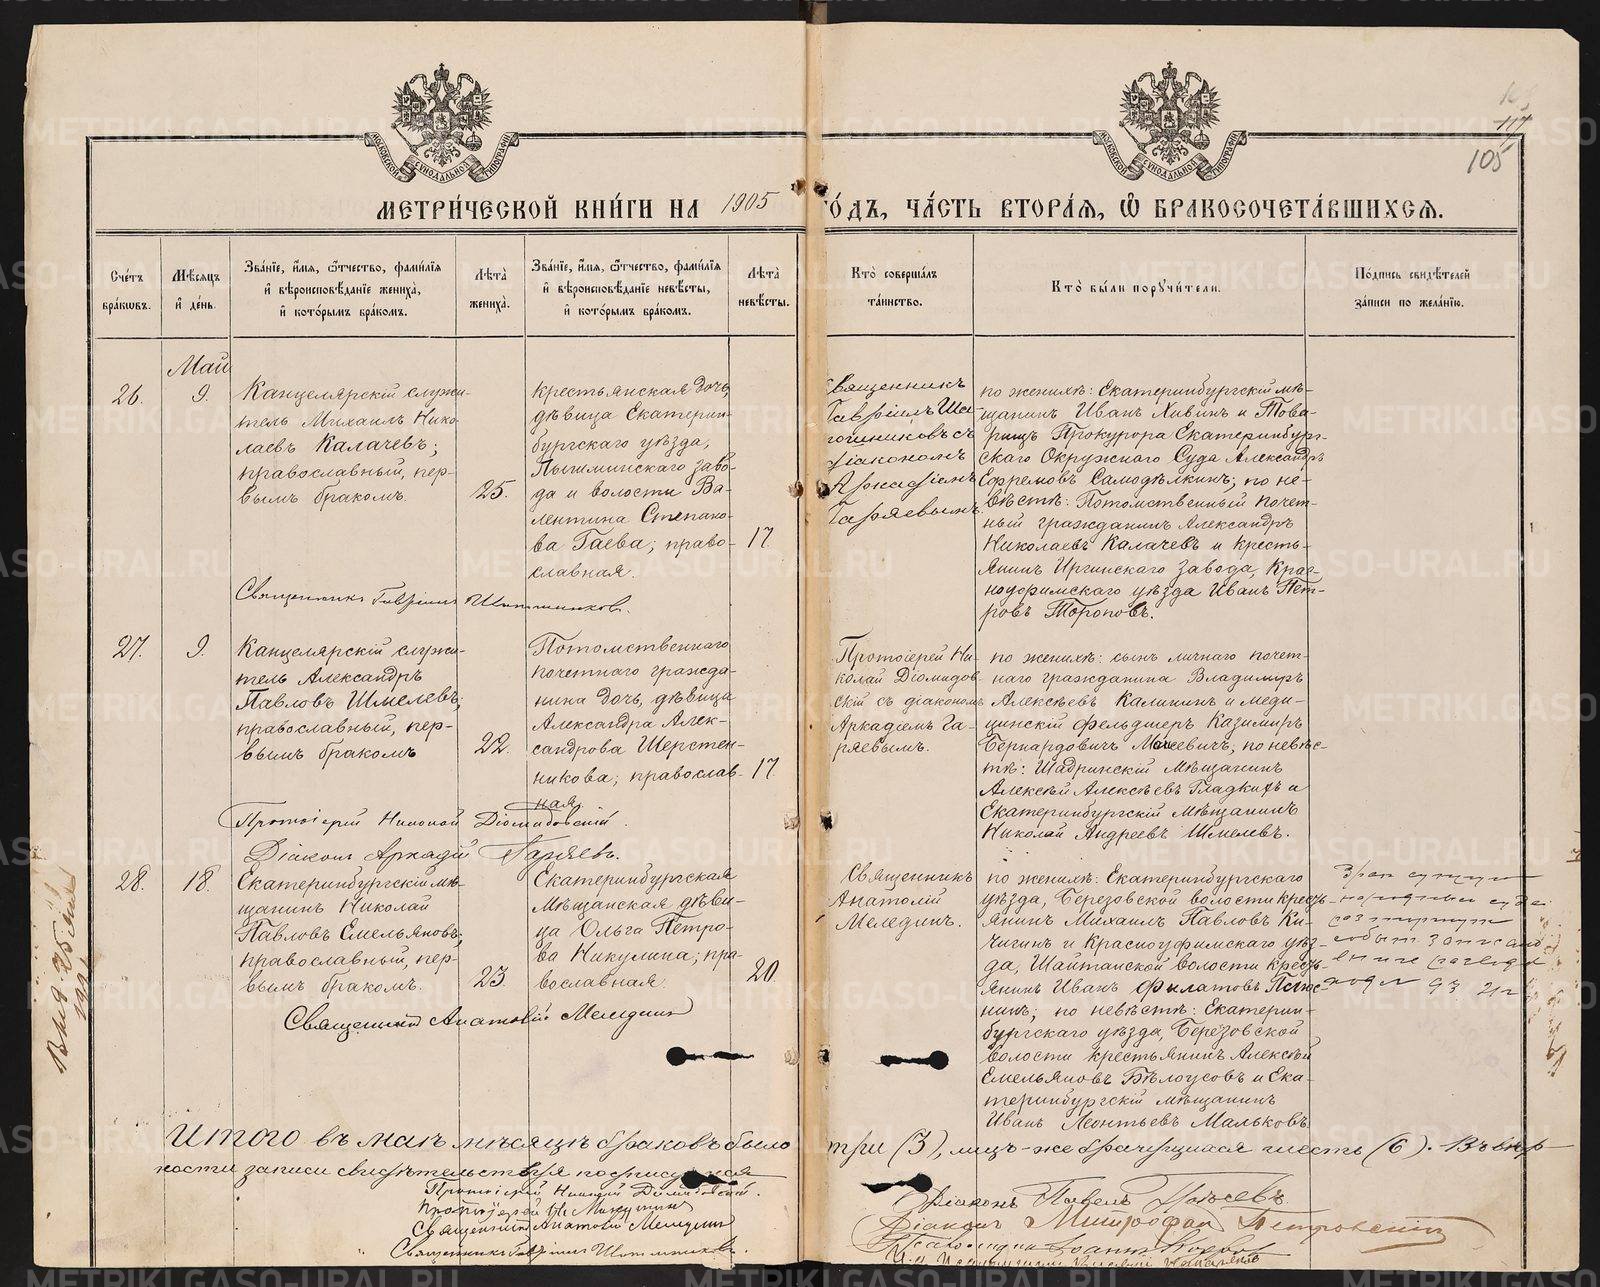 105
МЕТРИ́ЧЕСКОЙ КНИ́ГИ НА 1905 ГО́ДЪ, ЧА́СТЬ ВТОРА́Я, Ѡ БРАКОСОЧЕТА́ВШИХСЯ.
Сче́тъ бра́кωвъ.
Мѣ́сяцъ и҆ де́нь.
Зва́нїе, и҆́мя, ѻ҆́тчество, фами́лїя и҆ вѣроисповѣ́данїе жениха̀, и҆ кото́рымъ бра́комъ.
Лѣ́та жениха̀.
Зва́нїе, и҆́мя, ѻ҆́тчество, фами́лїя и҆ вѣроисповѣ́данїе невѣ́сты, и҆ кото́рымъ бра́комъ.
Лѣ́та невѣ́сты.
Кто̀ соверша́лъ та́инство.
Кто̀ бы́ли поручи́тели.
По́дпись свидѣ́телей за́писи по жела́нїю.
Май
26.
9.
Канцелярскій служи-
тель Михаилъ Нико-
лаевъ Калачевъ;
православный, пер-
вымъ бракомъ.
25.
крестьянская дочь,
дѣвица Екатерин-
бургскаго уѣзда,
Пышминскаго заво-
да и волости Ва-
лентина Степано-
ва Гаева; право-
славная.
17.
Священникъ
Гавріилъ Ша-
пошниковъ съ
діакономъ
Аркадіемъ
Гаряевымъ.
по женихѣ: Екатеринбургскій мѣ-
щанинъ Иванъ Хивинъ и Това-
рищъ Прокурора Екатеринбург-
скаго Окружнаго Суда Александръ
Ефремовъ Самодѣлкинъ; по не-
вѣстѣ: Потомственный почет-
ный гражданинъ Александръ
Николаевъ Калачевъ и кресть-
янинъ Иргинскаго завода, Крас-
ноуфимскаго уѣзда Иванъ Пет-
ровъ Тороповъ.
Священникъ Гавріилъ Шапошниковъ.
27.
9.
Канцелярскій служи-
тель Александръ
Павловъ Шмелевъ;
православный, пер-
вымъ бракомъ
22.
Потомственнаго
почетнаго гражда-
нина дочь, дѣвица
Александра Алек-
сандрова Шерстен-
никова; православ-
ная.
17.
Протоіерей Ни-
колай Діомидов-
скій съ діакономъ
Аркадіемъ Га-
ряевымъ.
по женихѣ: сынъ личнаго почет-
наго гражданина Владимиръ
Алексѣевъ Калинин и меди-
цинскій фельдшеръ Казимиръ
Бернардовичъ; по невѣс-
тѣ: Шадринскій мѣщанинъ
Алексѣй Алексѣевъ Гладкихъ и
Екатеринбургскій мѣщанинъ
Николай Андреевъ Шмелевъ.
Протоіерей Николай Діомидовскій.
Діаконъ Аркадій Гаряевъ.
28.
18.
Екатеринбургскій мѣ-
щанинъ Николай
Павловъ Емельяновъ;
православный, пер-
вымъ бракомъ.
23.
Екатеринбургская
мѣщанская дѣви-
ца Ольга Петро-
ва Никулина; пра-
вославная.
20.
Священникъ
Анатолій
Меледин.
по женихѣ: Екатеринбургскаго
уѣзда, Березовской волости кресть-
янинъ Михаилъ Павловъ Ки-
чигинъ и Красноуфимскаго уѣз-
да, Шайтанской волости кресть-
янинъ Иванъ Филатовъ
по невѣстѣ: Екатерин-
бургскаго уѣзда, Березовской
волости крестьянинъ Алексѣй
Емельяновъ Бѣлоусовъ и Ека-
теринбургскій мѣщанинъ
Иванъ Леонтьевъ Мальковъ.
Священникъ Анатолій Меледин
Итого въ маѣ мѣсяцѣ браковъ было три (3), лицъ-же брачущихся шесть (6). Въ вѣр-
ности записи свидѣтельствуя подписуемся
Протоіерей Николай Діомидовскій.
Священникъ Анатолій Меледин
Священникъ Гавріилъ Шапошниковъ.
Діаконъ Павелъ
Діаконъ Митрофанъ Петровскій